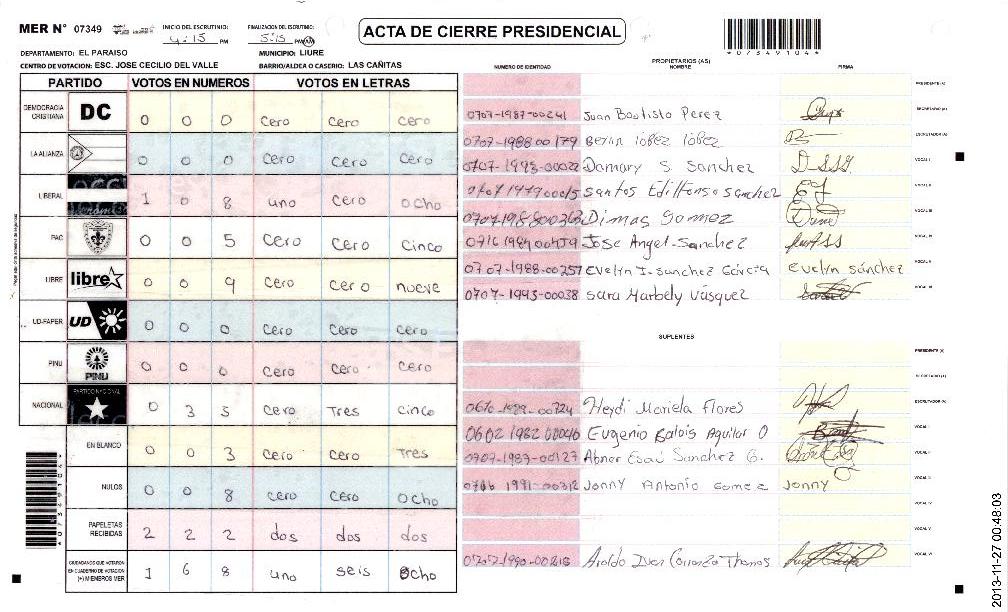 MER N° 07349 INICIO DEL ESCRUTINIO: 4:15 PM FINALIZACION DEL ESCRUTINIO: 5:15 PM
ACTA DE CIERRE PRESIDENCIAL
*07349104*
DEPARTAMENTO: EL PARAISO MUNICIPIO: LIURE
CENTRO DE VOTACION: ESC. JOSE CECILIO DEL VALLE BARRIO/ALDEA O CASERIO: LAS CAÑITAS
PARTIDO VOTOS EN NUMEROS VOTOS EN LETRAS
DEMOCRACIA CRISTIANA DC 0 0 0 cero cero cero
LA ALIANZA 0 0 0 cero cero cero
LIBERAL 1 0 8 uno cero ocho
PAC 0 0 5 cero cero cinco
LIBRE libre 0 0 9 cero cero nueve
UD-FAPER UD 0 0 0 cero cero cero
PINU PINU 0 0 0 cero cero cero
NACIONAL PARTIDO NACIONAL 0 3 5 cero Tres cinco
EN BLANCO 0 0 3 cero cero Tres
NULOS 0 0 8 cero cero ocho
PAPELETAS RECIBIDAS 2 2 2 dos dos dos
CIUDADANOS QUE VOTARON EN CUADERNO DE VOTACION (+) MIEMBROS MER 1 6 8 uno seis ocho
PROPIETARIOS (AS)
NUMERO DE IDENTIDAD NOMBRE FIRMA
PRESIDENTE (A)
0707-1987-00241 Juan Bautisto Perez SECRETARIO (A)
0707-1988 00179 Berin lobez lobez ESCRUTADOR (A)
0707-1993-00022 Damary S Sanchez DSSG VOCAL I
0707 1979 00015 Santos Edilfonso Sanchez VOCAL II
0707 1988 00363 Dimas Gomez VOCAL III
Jose Angel Sanchez VOCAL IV
0707-1988-00257 Evelyn I. Sanchez García evelyn sánchez VOCAL V
0707-1993-00038 Sara Marbely Vásquez VOCAL VI
SUPLENTES
PRESIDENTE (A)
SECRETARIO (A)
Heydi Mariela Flores ESCRUTADOR (A)
0602 1982 00046 Eugenio Galois Aquilar O VOCAL I
0707-1987-00127 Abner Esaú Sanchez G. VOCAL II
1991-00312 Jonny Antonio Gomez Jonny VOCAL III
VOCAL IV
VOCAL V
Aroldo VOCAL VI
2013-11-27 00:48:03